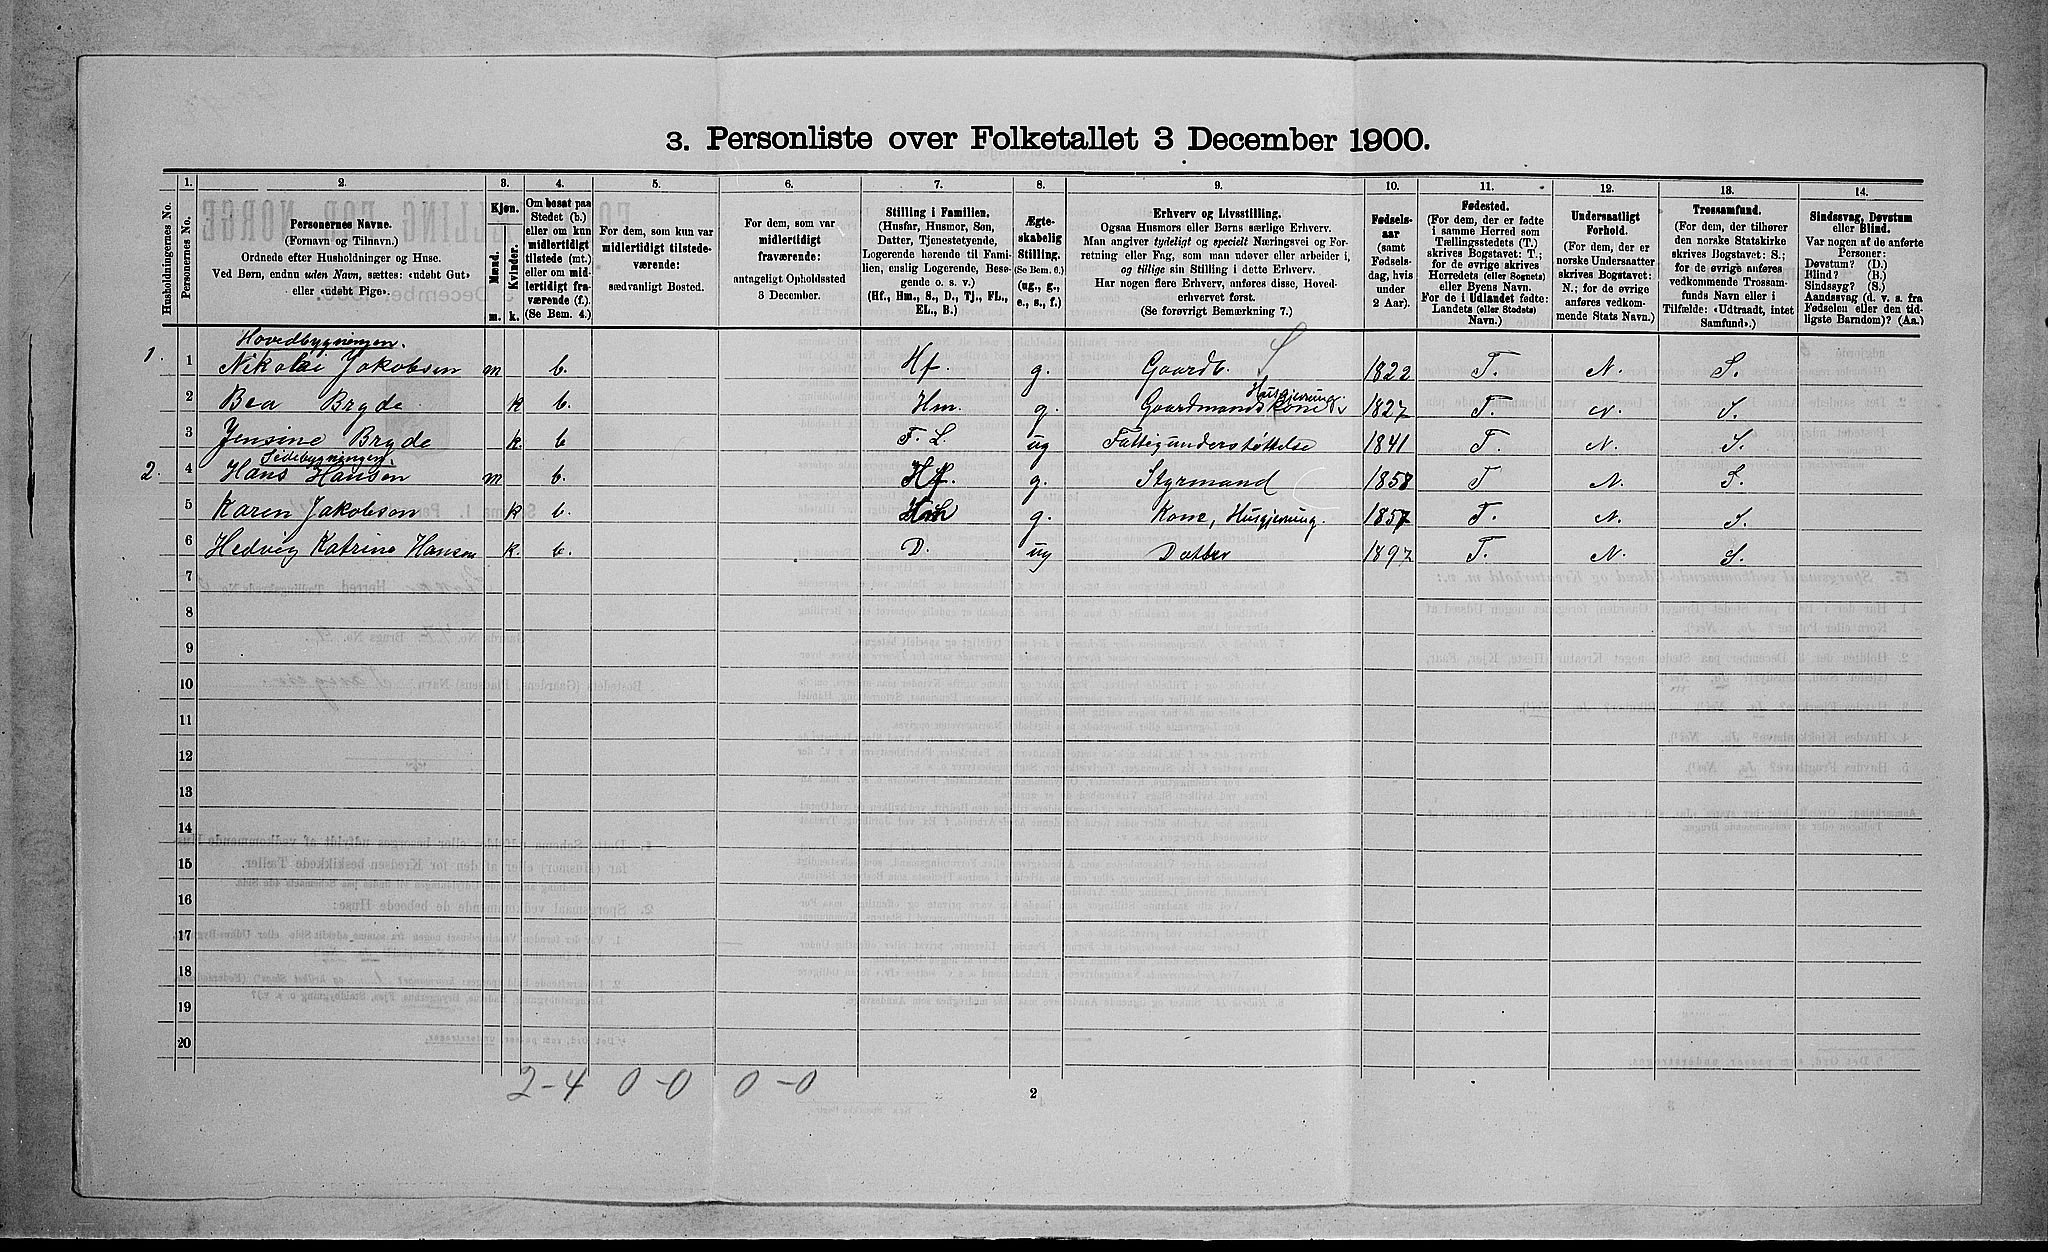 3. Personliste over Folketallet 3 December 1900.
1. 2. 3. 4. 5. 6. 7. 8. 9. 10. 11. 12. 13. 14.
Husholdningernes No.
Personernes No.
Personernes Navne.
(Fornavn og Tilnavn.)
Ordnede efter Husholdninger og Huse.
Ved Børn, endnu uden Navn, sættes: «udøbt Gut»
eller «udøbt Pige».
Kjøn.
Mænd.
Kvinder.
m. k.
Om bosat paa
Stedet (b.)
eller om kun
midlertidigt
tilstede (mt.)
eller om mid-
lertidigt fra-
værende (f.)
(Se Bem. 4.)
For dem, som kun var
midlertidigt tilstede-
værende:
sædvanligt Bosted.
For dem, som var
midlertidigt
fraværende:
antageligt Opholdssted
3 December.
Stilling i Familien.
(Husfar, Husmor, Søn,
Datter, Tjenestetyende,
Logerende hørende til Fami-
lien, enslig Logerende, Besø-
gende o. s. v.)
(Hf., Hm., S., D., Tj., FL.,
EL., B.)
Ægte-
skabelig
Stilling.
(Se Bem. 6.)
(ug., g.,
e., s., f.)
Erhverv og Livsstilling.
Ogsaa Husmors eller Børns særlige Erhverv.
Man angiver tydeligt og specielt Næringsvei og For-
retning eller Fag, som man udøver eller arbeider i,
og tillige sin Stilling i dette Erhverv.
Har nogen flere Erhverv, anføres disse, Hoved-
erhvervet først.
(Se forøvrigt Bemærkning 7.)
Fødsels-
aar
(samt
Fødsels-
dag, hvis
under
2 Aar).
Fødested.
(For dem, der er fødte
i samme Herred som
Tællingsstedets (T.)
skrives Bogstavet: T.;
for de øvrige skrives
Herredets (eller Sognets)
eller Byens Navn.
For de i Udlandet fødte:
Landets (eller Stedets)
Navn.)
Undersaatligt
Forhold.
(For dem, der er
norske Undersaatter
skrives Bogstavet:
N.; for de øvrige
anføres vedkom-
mende Stats Navn.)
Trossamfund.
(For dem, der tilhører
den norske Statskirke
skrives Bogstavet: S.;
for de øvrige anføres
vedkommende Trossam-
funds Navn eller i
Tilfælde: «Udtraadt, intet
Samfund».)
Sindssvag, Døvstum
eller Blind.
Var nogen af de anførte
Personer:
Døvstum? (D.)
Blind? (B.)
Sindssyg? (S.)
Aandssvag (d. v. s. fra
Fødselen eller den tid-
ligste Barndom)? (Aa.)
Hovedbygningen.
1. 1 Nikolai Jakobsen m b. Hf. g. Gaardb. 1822 T. N. S.
2 Bea Bryde k b. Hm. g. Gaardmandskone Husgjerning. 1827 T. N. S.
3 Jensine Bryde k. b F. L. ug Fattigunderstøttelse 1841 T. N. S.
Sidebygningen.
2. 4 Hans Hansen m b. Hf. g. Styrmand 1858 T N. S.
5 Karen Jakobson k b. g. Kone, Husgjerning. 1857 T. N. S.
6 Hedvig Katrine Hansen k. b. D. ug Datter 1897 T. N. S.
7
8
9
10
11
12
13
14
15
16
17
18
19
20
2-4 0-0 0-0
2